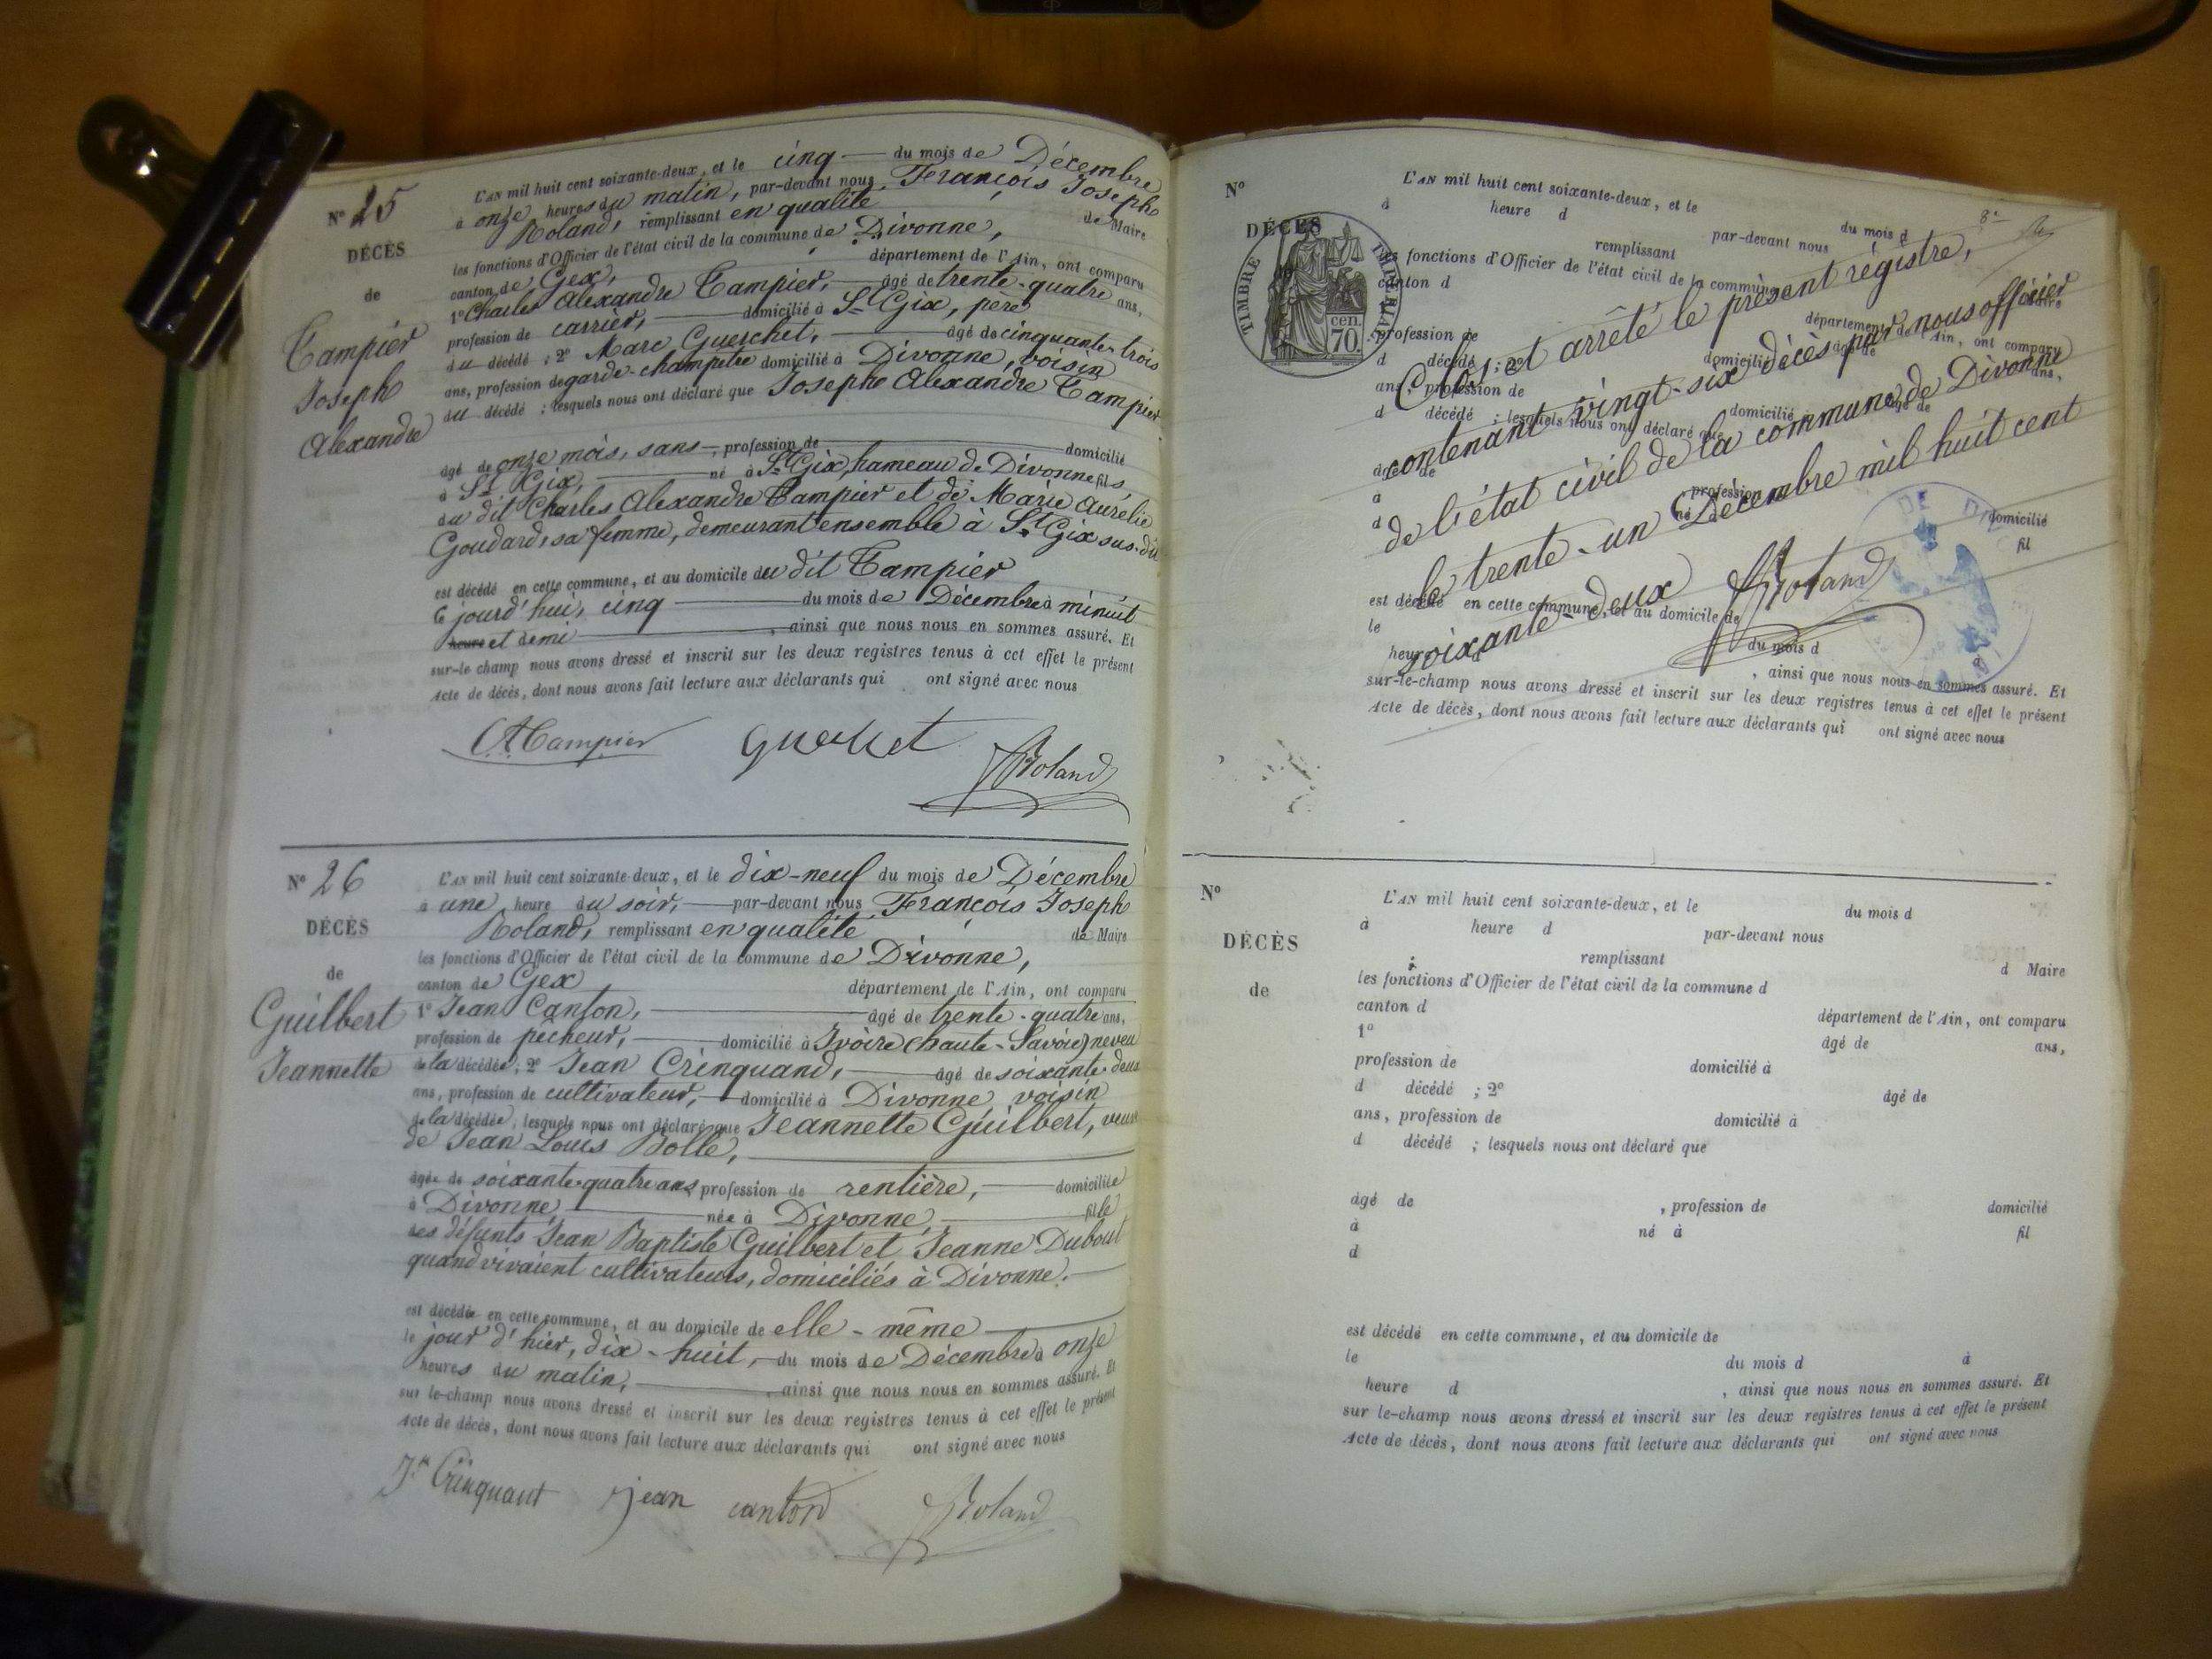 N° 25
DÉCÈS
de
Tampier
Joseph
Alexandre
L'AN mil huit cent soixante-deux, et le cinq du mois de Décembre
à onze heures du matin, par-devant nous François Joseph
Roland, remplissant en qualité de Maire
les fonctions d'Officier de l'état civil de la commune de Divonne,
canton de Gex, département de l'Ain, ont comparu
1° Charles Alexandre Tampier, âgé de trente-quatre ans,
profession de carrier, domicilié à St Gix, père
du décédé ; 2° Marc Guerchet, âgé de cinquante-trois
ans, profession de garde-champêtre domicilié à Divonne, voisin
du décédé ; lesquels nous ont déclaré que Joseph Alexandre Tampier
âgé de onze mois, sans profession de domicilié
à St Gix, né à St Gix, hameau de Divonne fils
du dit Charles Alexandre Tampier et de Marie Aurélie
Goudard, sa femme, demeurant ensemble à St Gix sus-dit
est décédé en cette commune, et au domicile du dit Tampier
le jourd'hui, cinq du mois de Décembre à minuit
heure et demi, ainsi que nous nous en sommes assuré. Et
sur-le champ nous avons dressé et inscrit sur les deux registres tenus à cet effet le présent
Acte de décès, dont nous avons fait lecture aux déclarants qui ont signé avec nous
Tampier Guerchet Roland
N° 26
DÉCÈS
de
Guilbert
Jeannette
L'AN mil huit cent soixante-deux, et le dix-neuf du mois de Décembre
à une heure du soir, par-devant nous François Joseph
Roland, remplissant en qualité de Maire
les fonctions d'Officier de l'état civil de la commune de Divonne,
canton de Gex département de l'Ain, ont comparu
1° Jean Canton, âgé de trente-quatre ans,
profession de pêcheur, domicilié à Ivoire (haute-Savoie) neveu
de la décédée ; 2° Jean Crinquand, âgé de soixante-deux
ans, profession de cultivateur, domicilié à Divonne voisin
de la décédée ; lesquels nous ont déclaré que Jeannette Guilbert, veuve
de Jean Louis Bolle,
âgée de soixante-quatre ans profession de rentière, domiciliée
à Divonne, née à Divonne, fille
des défunts Jean Baptiste Guilbert et Jeanne Dubout
quand vivaient cultivateurs, domiciliés à Divonne.
est décédée en cette commune, et au domicile de elle-même
le jour d'hier, dix-huit, du mois de Décembre à onze
heures du matin, ainsi que nous nous en sommes assuré. Et
sur le-champ nous avons dressé et inscrit sur les deux registres tenus à cet effet le présent
Acte de décès, dont nous avons fait lecture aux déclarants qui ont signé avec nous
Jn Crinquant jean canton Roland
N°
DÉCÈS
TIMBRE IMPÉRIAL
70 cen.
L'AN mil huit cent soixante-deux, et le du mois d
à heure d par-devant nous
remplissant
les fonctions d'Officier de l'état civil de la commune
canton d département de l'Ain, ont comparu
profession de domicilié âgé de
d décédé ; 2° ans,
ans, profession de domicilié âgé de
d décédé ; lesquels nous ont déclaré que
âgé de profession domicilié
à né fil
d
est décédé en cette commune, et au domicile de
le du mois d
heure , ainsi que nous nous en sommes assuré. Et
sur-le-champ nous avons dressé et inscrit sur les deux registres tenus à cet effet le présent
Acte de décès, dont nous avons fait lecture aux déclarants qui ont signé avec nous
Clos et arrêté le présent régistre,
contenant vingt-six décès par nous officier
de l'état civil de la commune de Divonne
le trente-un Décembre mil huit cent
soixante-deux Roland
N°
DÉCÈS
de
L'AN mil huit cent soixante-deux, et le du mois d
à heure d par-devant nous
remplissant d Maire
les fonctions d'Officier de l'état civil de la commune d
canton d département de l'Ain, ont comparu
1° âgé de ans,
profession de domicilié à
d décédé ; 2° âgé de
ans, profession de domicilié à
d décédé ; lesquels nous ont déclaré que
âgé de , profession de domicilié
à né à fil
d
est décédé en cette commune, et au domicile de
le du mois d à
heure d , ainsi que nous nous en sommes assuré. Et
sur le-champ nous avons dressé et inscrit sur les deux registres tenus à cet effet le présent
Acte de décès, dont nous avons fait lecture aux déclarants qui ont signé avec nous